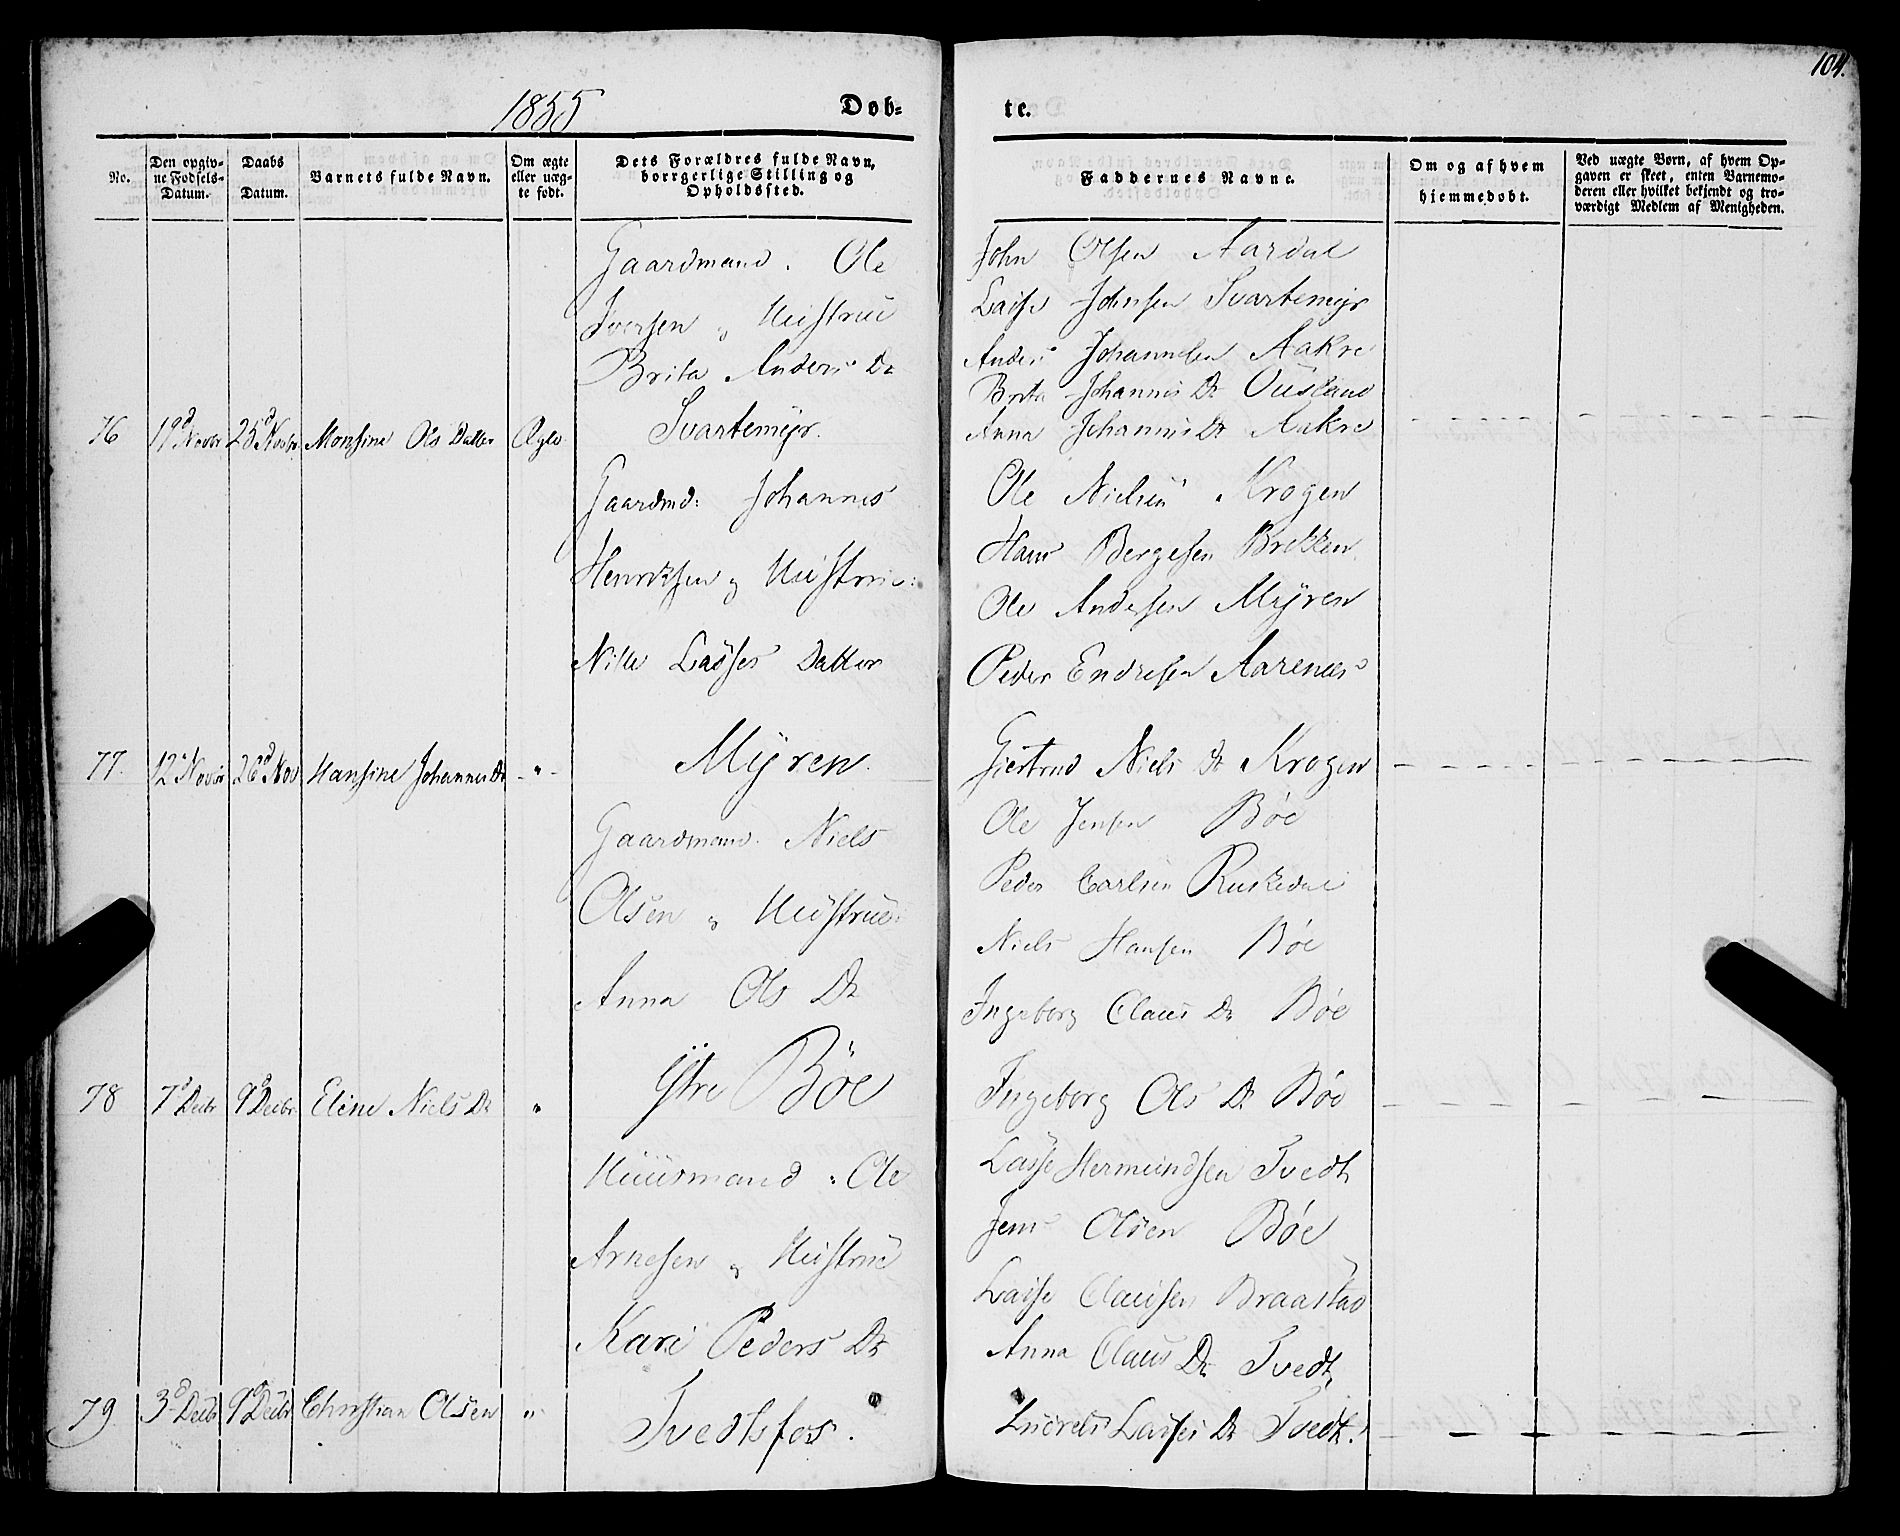 104.
1855
Døb=
te.
No.
Den opgiv-
ne Fødsels-
Datum.
Daabs
Datum.
Barnets fulde Navn.
Om ægte
eller uæg-
te født.
Dets Forældres fulde Navn,
borrgerlige Stilling og
Opholdssted.
Faddernes Navne.
Om og af hvem
hjemmedøbt.
Ved uægte Børn, af hvem Op-
gaven er skeet, enten Barnemo-
deren eller hvilket bekjendt og tro-
værdigt Medlem af Menigheden.
Gaardmand. Ole
Iversen og Huistrue
Brita Anders Dr
Svartemyr.
76 19d Novbr 25d Novbr Monsine Ols Datter Ægte
John Olsen Aardal
Lasse Johnsen Svartemyr
Anders Johannesen Aakre
Brita Johannis Dr Ousland
Anna Johannis Dr Aakre
Gaardmd: Johannes
Henriksen og Huistrue:
Nille Lasses Datter
Myren.
77. 12 Novbr 26d Nov Hansine Johannes Dr - " -
Ole Nielsen Krogen
Hans Bergesen Brekken
Ole Andersen Myren
Peder Endresen Aarenæs
Giertrud Niels Dr Krogen
Gaardmand. Niels
Olsen og Huistrue:
Anna Ols Dr
Ytre Böe
78 7d Decbr 9d Decbr Eline Niels Dr "
Ole Jensen Böe
Peder Carlsen Ruskedal
Niels Hansen Böe
Ingeborg Claus Dr Böe
Ingeborg Ols Dr Böe
Huusmand: Ole
Arnesen og Huistrue
Kari Peders Dr
Tvedtsfos.
79. 3d Decbr 9d Decbr Christian Olsen "
Lasse Hermundsen Tvedt
Jens Olsen Böe
Lasse Clausen Braastad
Anna Claus Dr Tvedt,
Lasses Dr Tvedt.